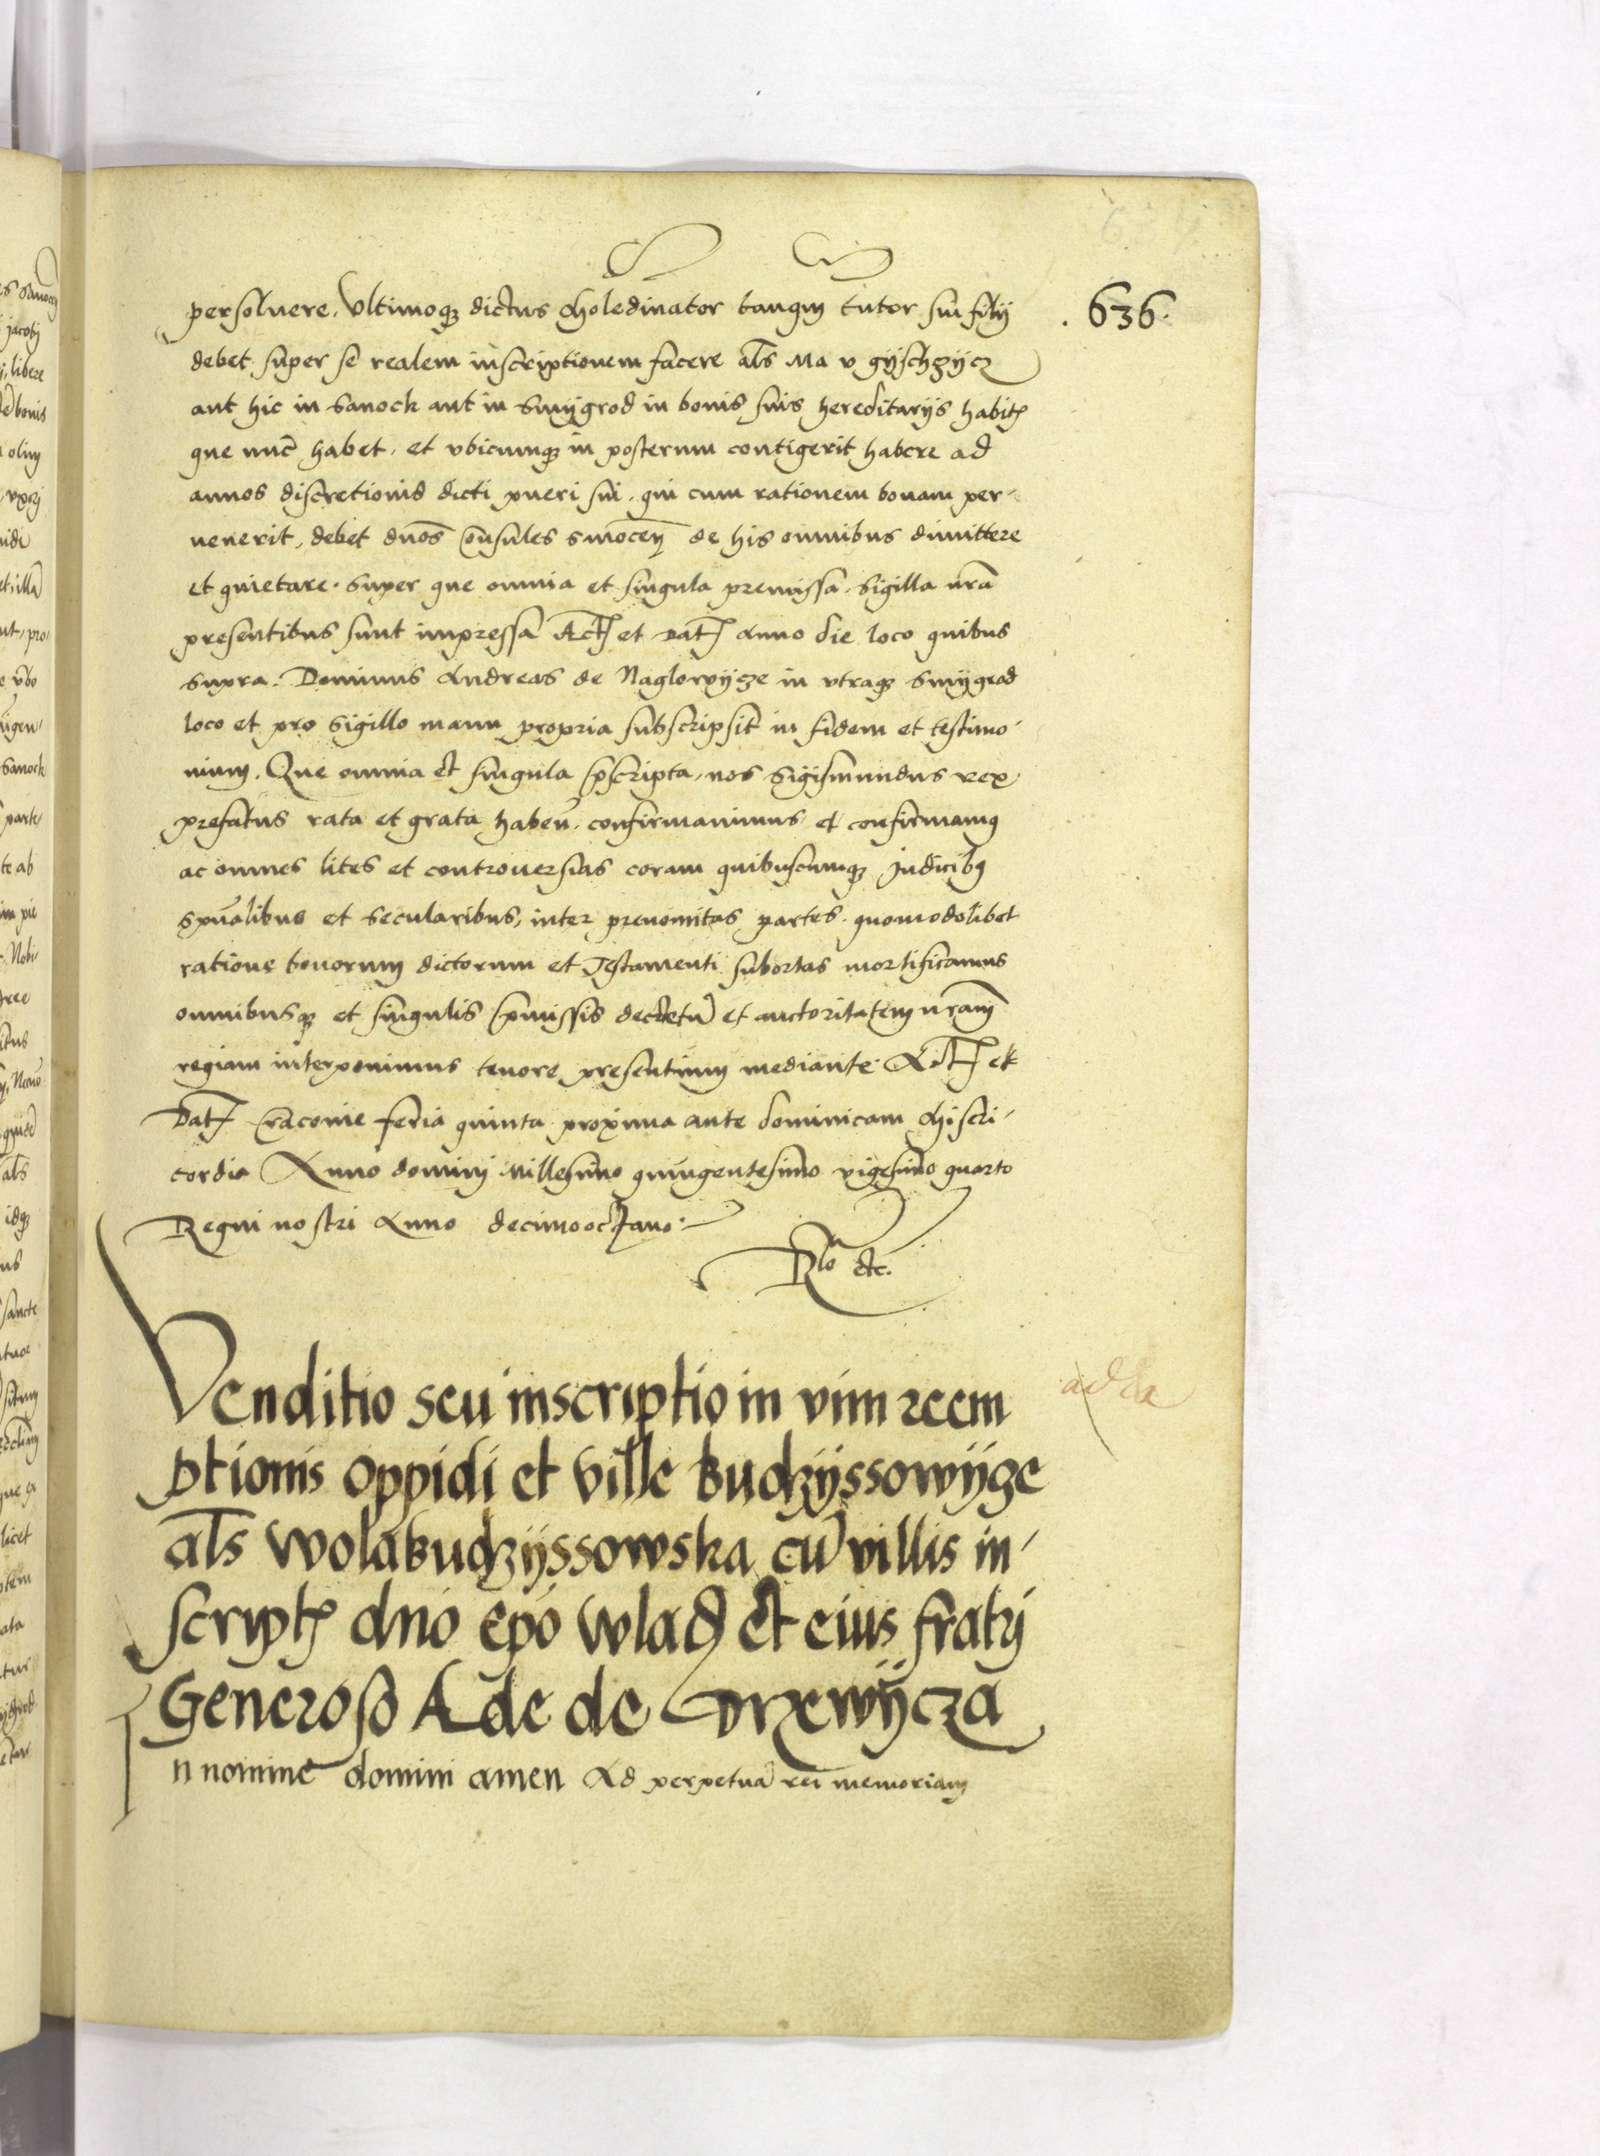 persoluere. Vltimoqꝫ dictus Moledinator tanqm tutor sui filij
.636.
debet super se realem inscriptionem facere als Ma v gijschzijcz
aut hic in Sanock aut in Smijgrod in bonis suis hereditarijs habit
que nuc̄ habet, et vbicumqꝫ in posterum contigerit habere ad
annos discretionis dicti pueri sui. qui cum rationem bonam per-
uenerit, debet dnōs consules de his omnibus dimittere
et quietare. Super que omnia et singula premissa. Sigilla nrā
presentibus sunt impressa Act et Dat Anno die loco quibus
supra. Dominus Andreas de Naglowijcze in vtraqꝫ Smijgrod
loco et pro sigillo manu propria subscripsit in fidem et testimo-
nium. Que omnia et singula scripta, nos Sigismundus rex
prefatus rata et grata haben̄. confirmauimus et confirmamꝰ
ac omnes lites et controuersias coram quibuscumqꝫ Judicibꝰ
spūalibus et secularibus, inter prenomitas partes. quomodolibet
ratione bonorum dictorum et Testamenti subortas mortificamus
omnibusqꝫ et singulis pmissis decretū et auctoritatem nram̄
regiam interponimus tenore presentium mediante. Act et
Dat Cracouie feria quinta proxima ante dominicam Miseri-
cordia Anno domini Millesimo quingentesimo vigesimo quarto
Regni nostri Anno decimooctauo.
Rlo etc.
Venditio seu inscriptio in vim reem
ptionis oppidi et ville Budzijssowijze
als Wola Budzijssowska cū villis in-
script dno epo Wlad et eius fratri
Generoso Ade de Drzewijcza
In nomine domini amen Ad perpetuā rei memoriam